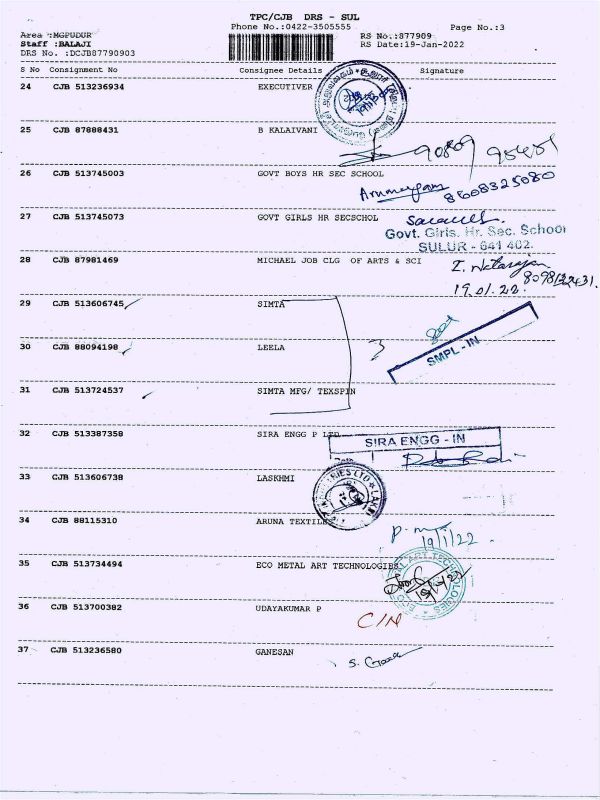 TPC/CJB DRS - SUL
Phone No.:0422-3505555 Page No.:3
Area :MGPUDUR RS No.:877909
Staff :BALAJI RS Date:19-Jan-2022
DRS No. :DCJB87790903
S No Consignment No Consignee Details Signature
24 CJB 513236934 EXECUTIVER
25 CJB 87888431 B KALAIVANI
26 CJB 513745003 GOVT BOYS HR SEC SCHOOL
8608325080
27 CJB 513745073 GOVT GIRLS HR SECSCHOL
Govt. Girls. Hr. Sec. School
SULUR - 641 402.
28 CJB 87981469 MICHAEL JOB CLG OF ARTS & SCI
I. Natarajan
8098132431.
19.01.22.
29 CJB 513606745 SIMTA
30 CJB 88094198 LEELA 3
SMPL - IN
31 CJB 513724537 SIMTA MFG/ TEXSPIN
32 CJB 513387358 SIRA ENGG P LTD
SIRA ENGG - IN
33 CJB 513606738 LASKHMI
34 CJB 88115310 ARUNA TEXTILES
19/1/22.
35 CJB 513734494 ECO METAL ART TECHNOLOGIES
36 CJB 513700382 UDAYAKUMAR P
C/N
37 CJB 513236580 GANESAN